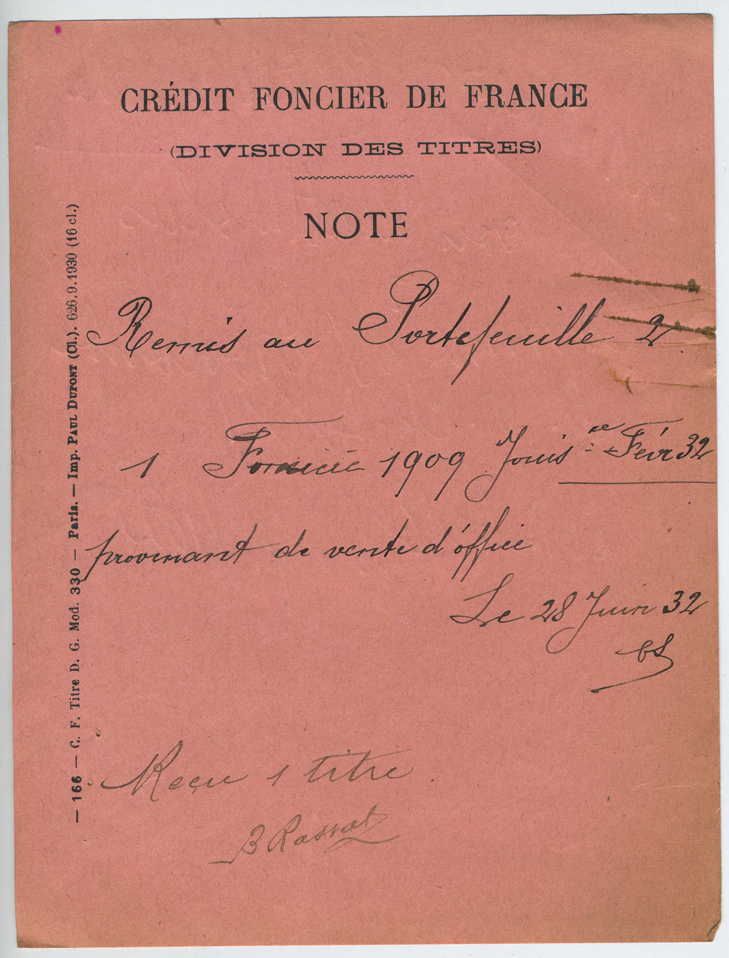 CRÉDIT FONCIER DE FRANCE
(DIVISION DES TITRES)
NOTE
Remis au Portefeuille 2
1 Foncière 1909 Jouis ce Févr 32
provenant de vente d'office
Le 28 Juin 32
Reçu 1 titre
— 166 — C. F. Titre D. G. Mod. 330 — Paris. — Imp. PAUL DUPONT (Cl.). 626.9.1930 (16 cl.)